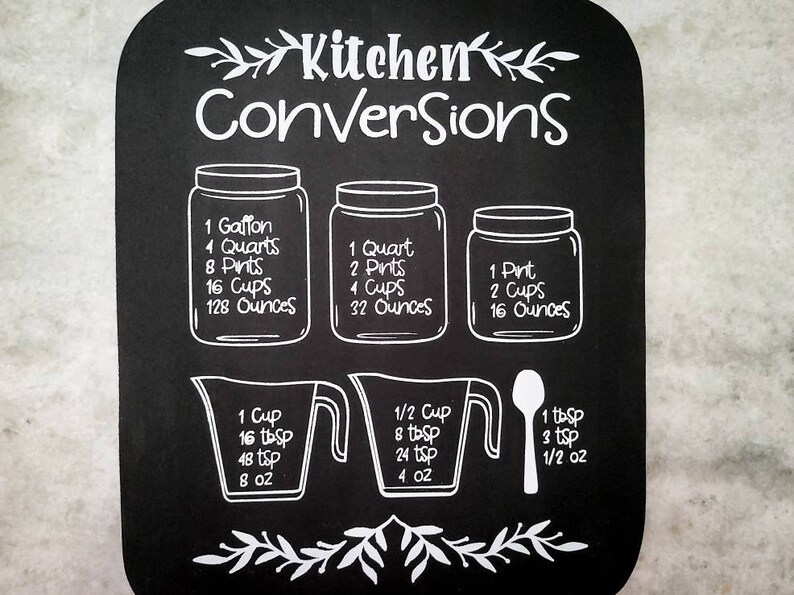 Kitchen
Conversions
1 Gallon
4 Quarts
8 Pints
16 Cups
128 Ounces
1 Quart
2 Pints
4 Cups
32 Ounces
1 Pint
2 Cups
16 Ounces
1 Cup
16 tbsp
48 tsp
8 oz
1/2 Cup
8 tbsp
24 tsp
4 oz
1 tbsp
3 tsp
1/2 oz